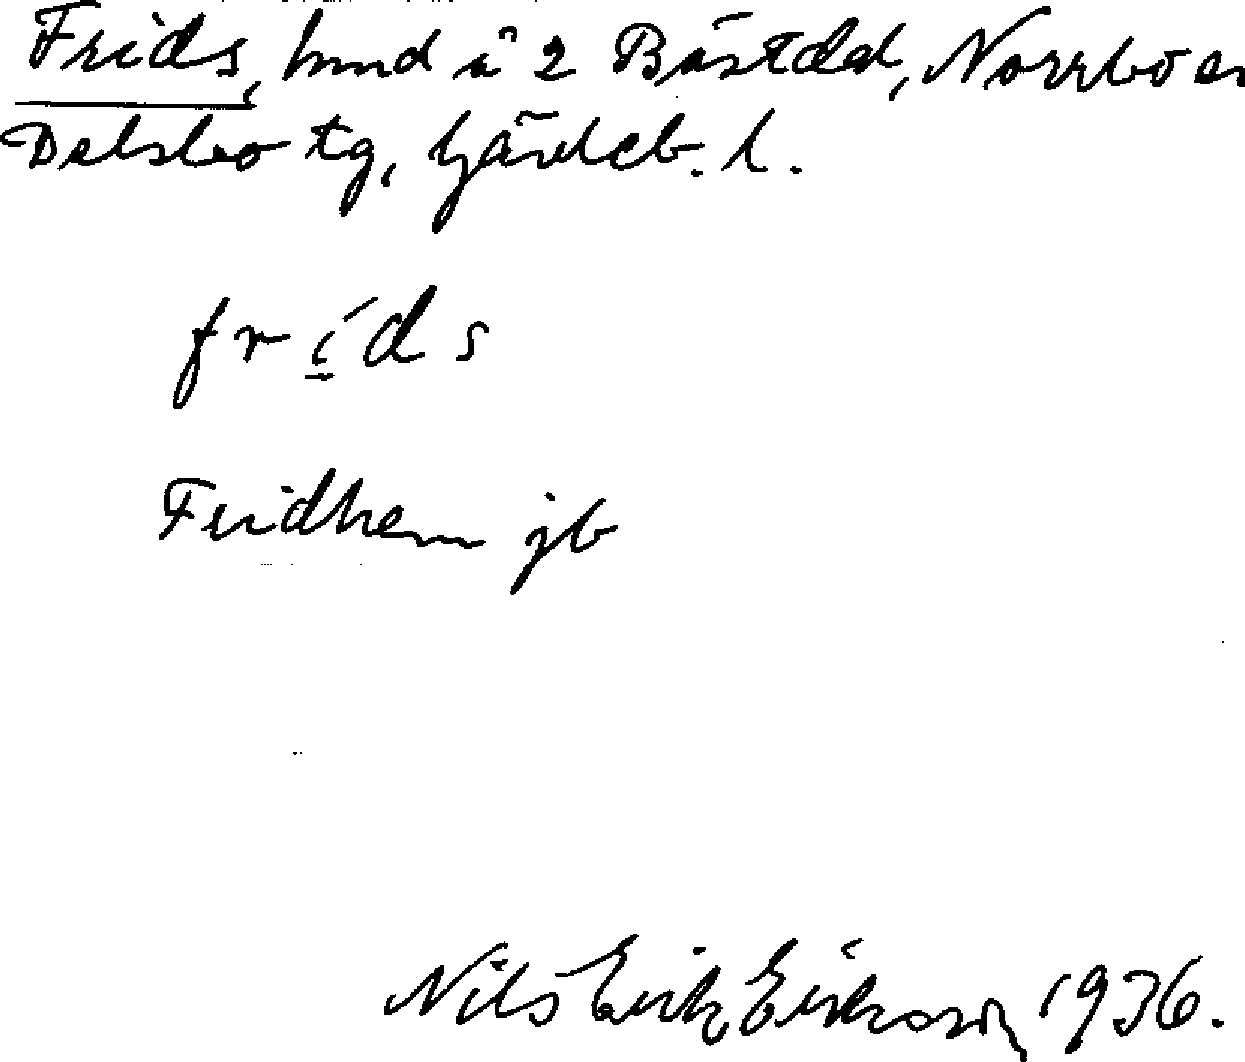 Frids, hmd å 2 Båstdal, Norrbo sn
Delsbo tg, Gävleb. l.
fr í d s
Fridhem jb
Nils Erik Eriksson 1936.